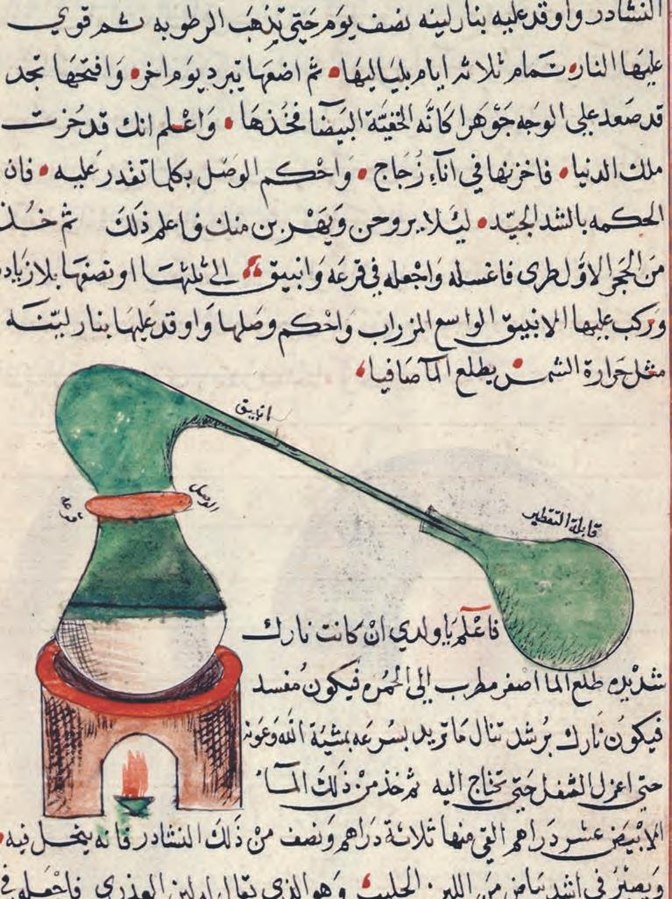 النشادر واوقد عليه بنار لينه نصف يوم حتى يذهب الرطوبه ثم قوي
عليها النار تمام ثلاثة ايام بلياليها ثم اضعها تبرد يوم اخر وافتحها تجد
قد صعد على الوجه جوهرا كانه الخفيّة البيضا فخذها واعلم انك قد حزت
ملك الدنيا فاخزنها في اناء زجاج واحكم الوصل بكلما تقدر عليه فان
الحكمه بالشد الجيّد ليئلا يروحن ويهربن منك فاعلم ذلك ثم خذ
من الحجر الاول طرى فاغسله واجعله في قرعه وانبيق الى ثلثها او نصفها بلا زياده
وركب عليها الانبيق الواسع المزراب واحكم وصلها واوقد عليها بنار لينه
مثل حرارة الشمس يطلع الما صافيا
انبيق
الوصل
قرعه
قابلة التقطير
فاعلم يا ولدي ان كانت نارك
شديده طلع الما اصفر مطرب إلى الحمره فيكون مفسد
فيكون نارك برشد تنال ما تريد بسرعه بمشية الله وعونه
حتى اعزل الثفل حتى تحتاج اليه ثم خذ من ذلك الماء
الابيض عشر دراهم القي منها ثلاثة دراهم ونصف من ذلك النشادر فانه ينحل فيه
ويصير في اشد بياض من اللبن الحليب وهو الذي يقال له لبن العذرى فاجعله في